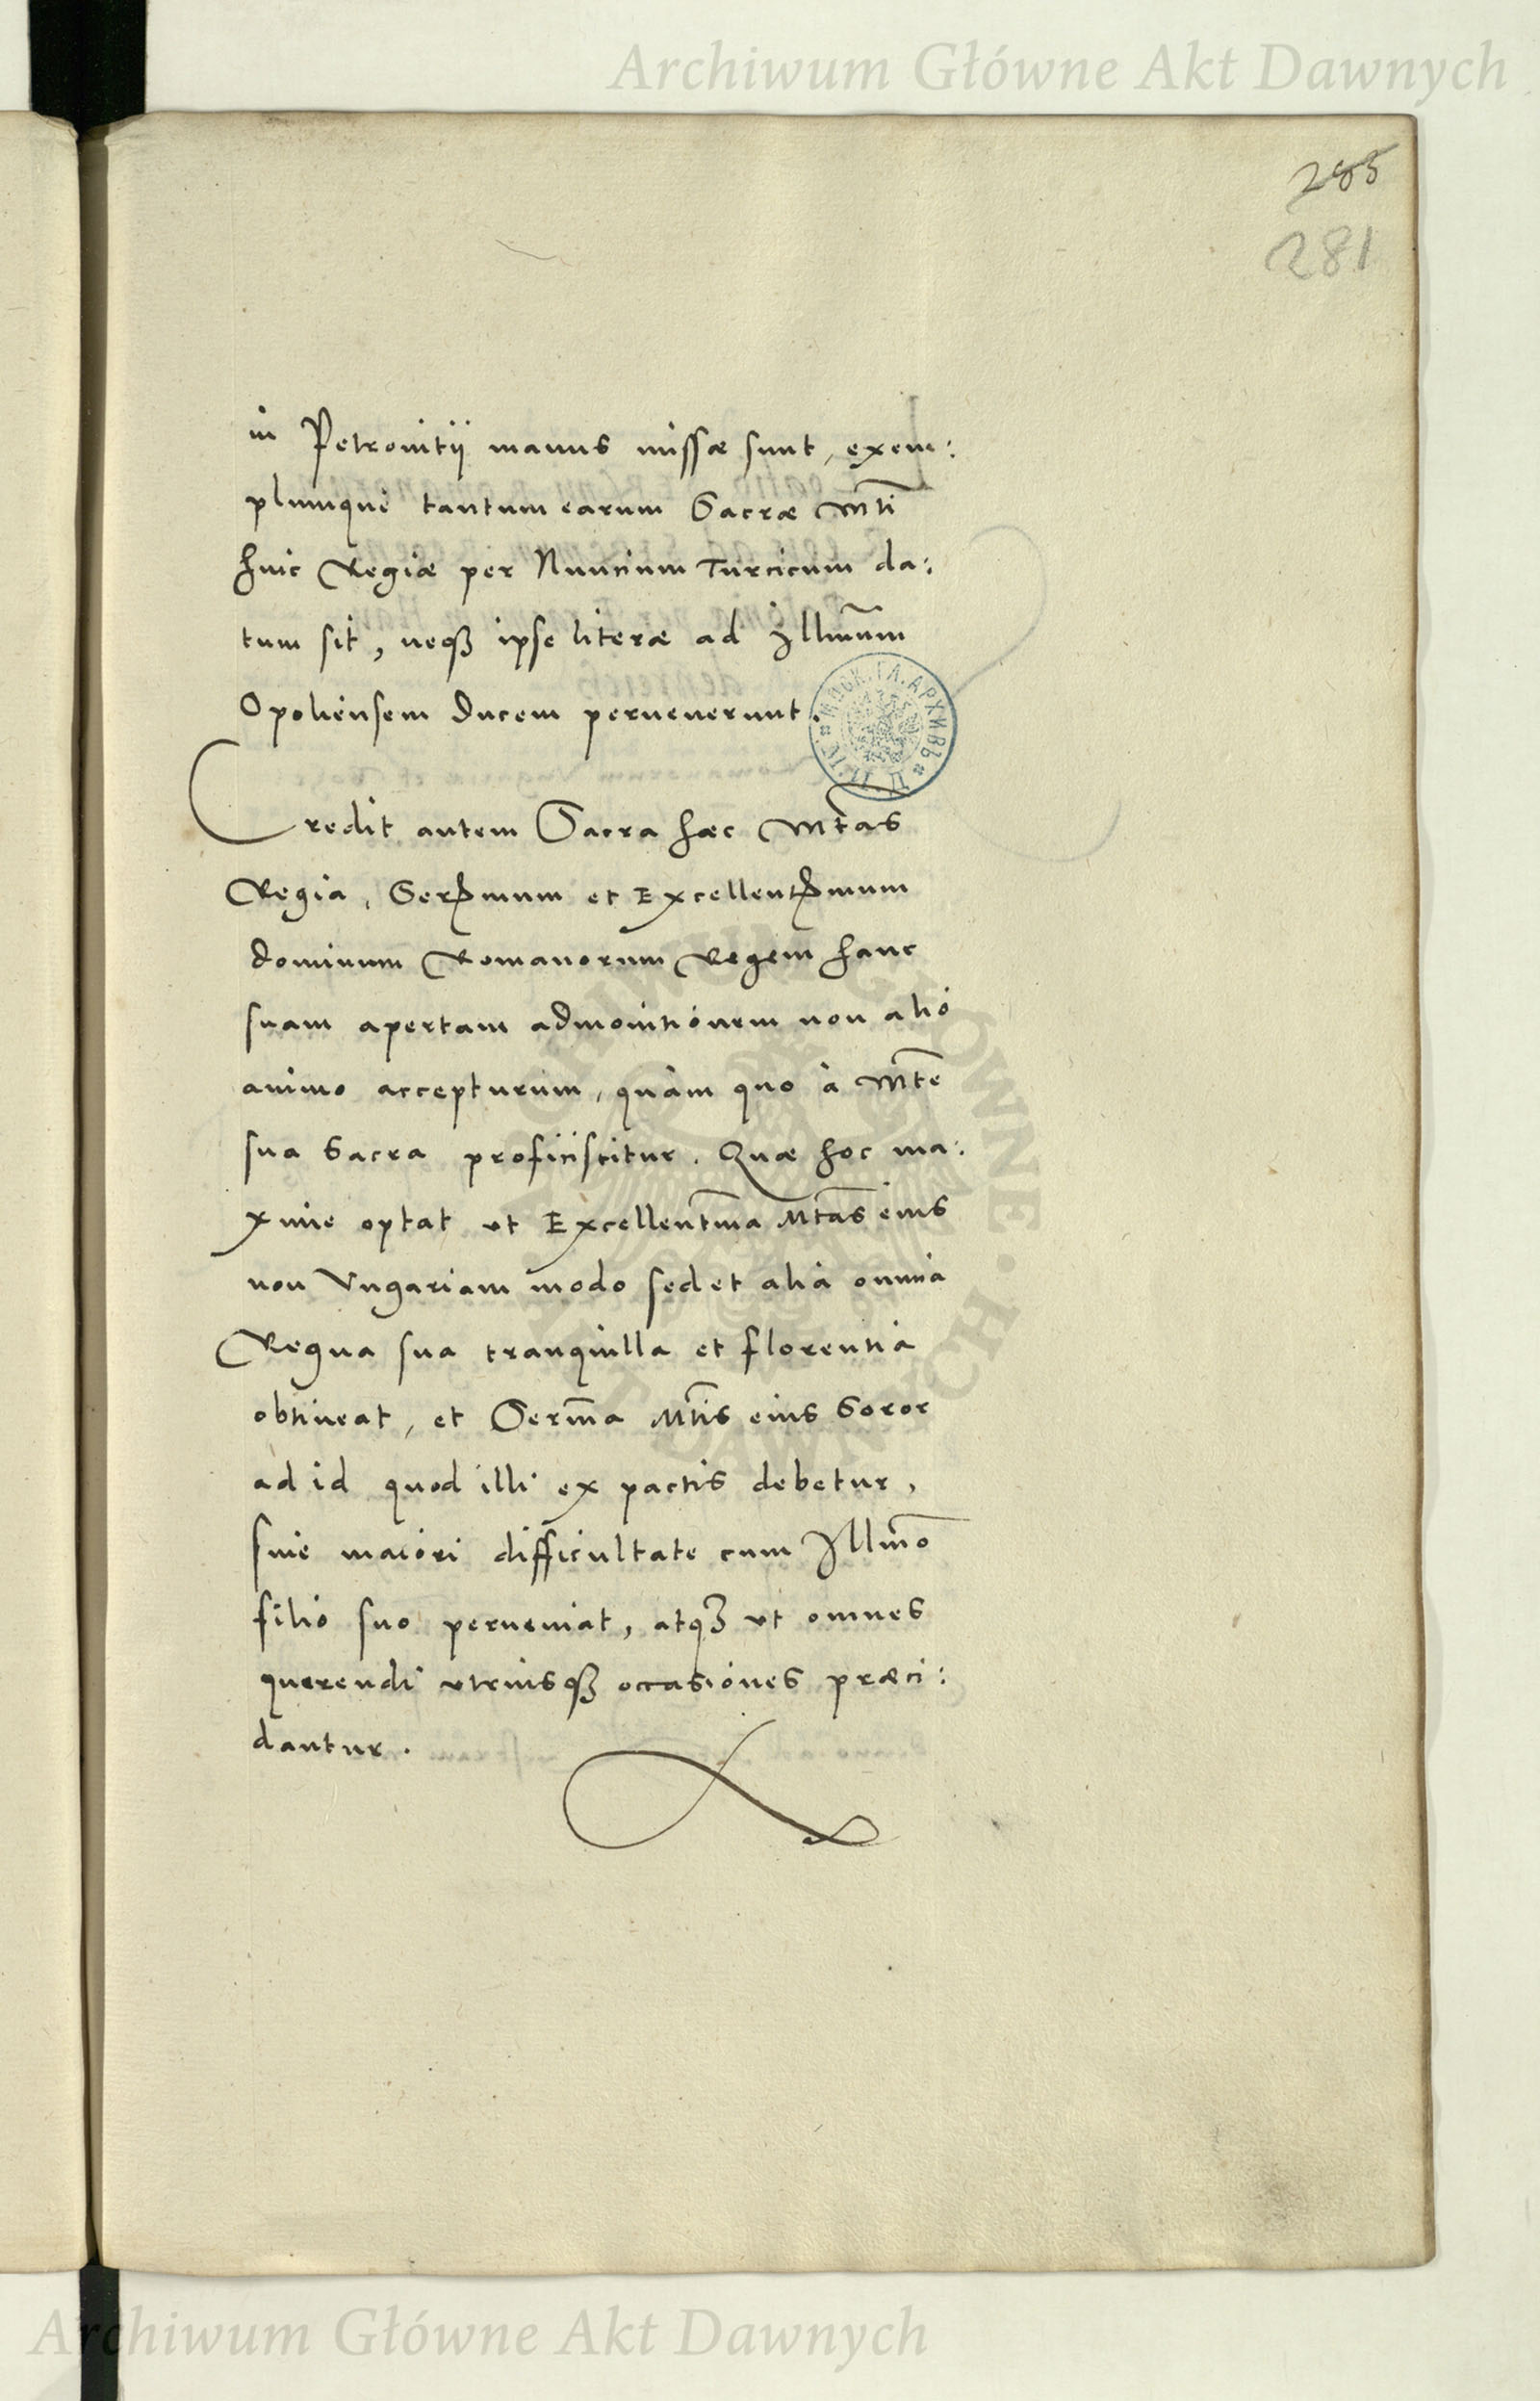 Archiwum Główne Akt Dawnych
285
281
in Petrovitij manus missæ sunt, exem:
plumque tantum earum Sacræ Mti
huic Regiæ per Nuncium Turcicum da:
tum sit, neqз ipse literæ ad Illmum
Opoliensem Ducem pervenerunt.
МОСК. ГЛ. АРХИВЪ
Credit autem Sacra hæc Mtas
Regia, Serßmum et Excellentßmum
dominum Romanorum Regem hanc
suam apertam admonitionem non alio
animo accepturum, quàm quo à Mte
sua Sacra proficiscitur. Quæ hoc ma:
xime optat ut Excellentma Mtas eius
non Vngariam modo sed et alia omnia
Regna sua tranquilla et florentia
obtineat, et Serma Mtis eius Soror
ad id quod illi ex pactis debetur,
sine maiori difficultate cum Illmo
filio suo perveniat, atqз ut omnes
querendi utriusqз occasiones præci:
dantur.
Archiwum Główne Akt Dawnych